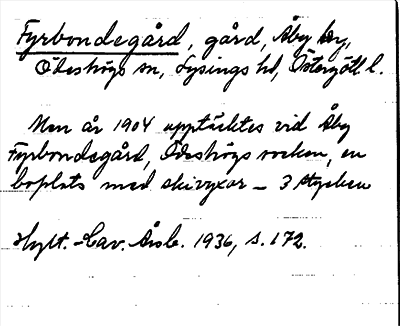 Fyrbondegård, gård, Åby by,
Ödeshögs sn, Lysings hd, Östergötl. l.
Men år 1904 upptäcktes vid Åby
Fyrbondegård, Ödeshögs socken, en
boplats med skivyxor – 3 stycken
Hylt.-Cav. Årsb. 1936, s. 172.